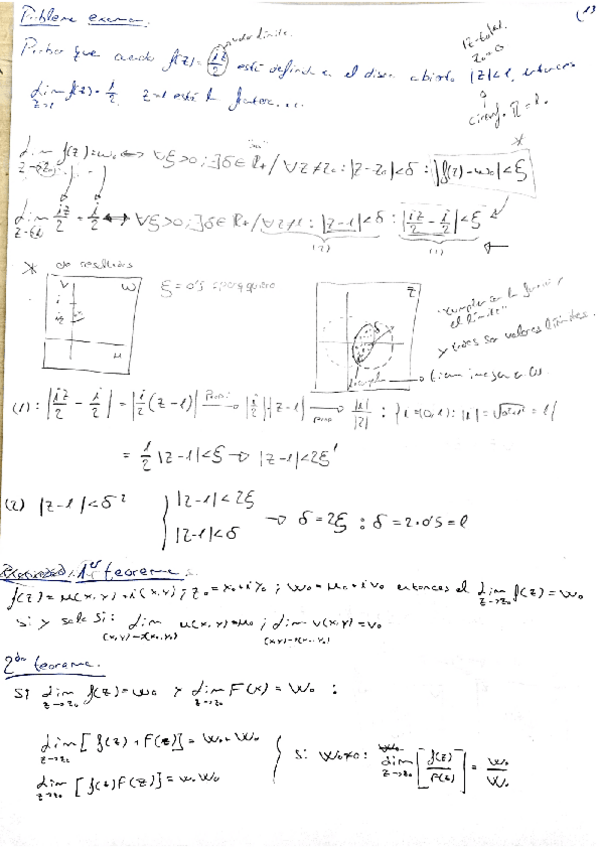 Problema examen.
13
Probar que cuando f(z) = iz/2 está definida en el disco abierto |z|<1, entonces
lim z→1 f(z) = i/2, z=1 está fuera...
z₀=0
circunf. R=1.
*
lim z→z₀ f(z)=w₀ ↔ ∀ξ>0; ∃δ∈R₊/∀z≠z₀: |z-z₀|<δ : |f(z)-w₀|<ξ
lim z→1 iz/2 = i/2 ↔ ∀ξ>0; ∃δ∈R₊/∀z≠1: |z-1|<δ : |iz/2 - i/2|<ξ
(2) (1)
*
V W i u
ξ=0'5
z δ
"cumplen en la función y el límite"
y todos son valores límites.
(1): |iz/2 - i/2| = |i/2 (z-1)| → |i/2||z-1| → |i|/|2| : {i=(0,1): |i|=√0²+1² = 1/
= 1/2 |z-1|<ξ → |z-1|<2ξ
(2) |z-1|<δ ? { |z-1|<2ξ
|z-1|<δ → δ=2ξ : δ=2·0'5=1
1er teorema.
f(z)=u(x,y)+i(x,y); z₀=x₀+iy₀; w₀=u₀+iv₀ entonces el lim z→z₀ f(z)=w₀
si y solo si: lim (x,y)→(x₀,y₀) u(x,y)=u₀; lim (x,y)→(x₀,y₀) v(x,y)=v₀
2do teorema.
Si lim z→z₀ f(z)=w₀ y lim z→z₀ F(x)=W₀ :
lim z→z₀ [f(z)+F(z)]=w₀+W₀
lim z→z₀ [f(z)F(z)]=w₀W₀
si W₀≠0: lim z→z₀ [f(z)/F(z)] = w₀/W₀